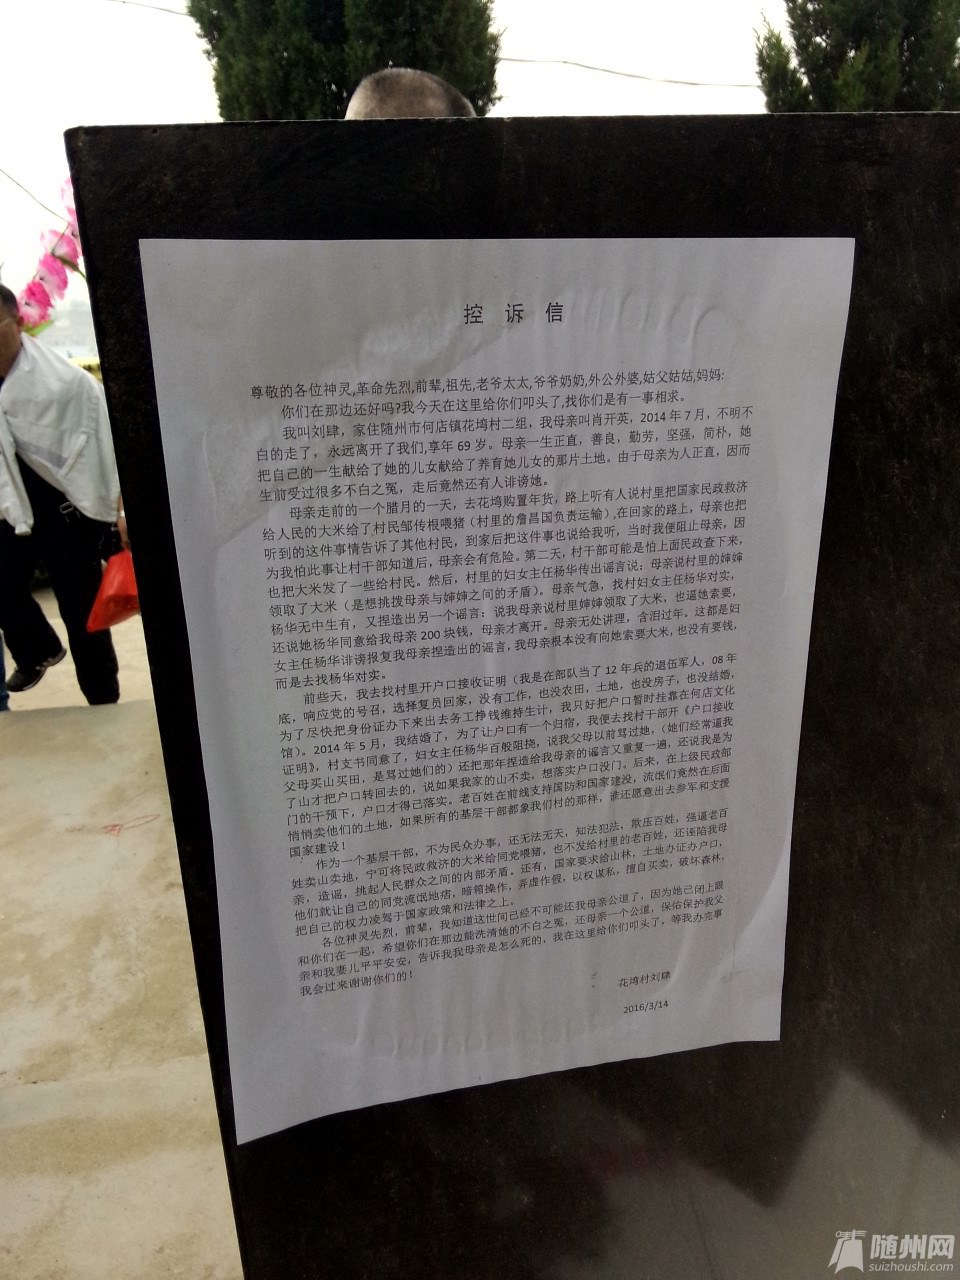 控 诉 信
尊敬的各位神灵,革命先烈,前辈,祖先,老爷太太,爷爷奶奶,外公外婆,姑父姑姑,妈妈:
你们在那边还好吗?我今天在这里给你们叩头了,找你们是有一事相求。
我叫刘肆，家住随州市何店镇花塆村二组，我母亲叫肖开英，2014年7月，不明不
白的走了，永远离开了我们,享年69岁。母亲一生正直，善良，勤劳，坚强，简朴，她
把自己的一生献给了她的儿女献给了养育她儿女的那片土地。由于母亲为人正直，因而
生前受过很多不白之冤，走后竟然还有人诽谤她。
母亲走前的一个腊月的一天，去花塆购置年货，路上听有人说村里把国家民政救济
给人民的大米给了村民邹传根喂猪（村里的詹昌国负责运输）,在回家的路上，母亲也把
听到的这件事情告诉了其他村民，到家后把这件事也说给我听，当时我便阻止母亲，因
为我怕此事让村干部知道后，母亲会有危险。第二天，村干部可能是怕上面民政查下来，
也把大米发了一些给村民。然后，村里的妇女主任杨华传出谣言说：母亲说村里的婶婶
领取了大米（是想挑拨母亲与婶婶之间的矛盾）。母亲气急，找村妇女主任杨华对实，
杨华无中生有，又捏造出另一个谣言：说我母亲说村里婶婶领取了大米，也逼她索要，
还说她杨华同意给我母亲200块钱，母亲才离开。母亲无处讲理，含泪过年。这都是妇
女主任杨华诽谤报复我母亲捏造出的谣言，我母亲根本没有向她索要大米，也没有要钱，
而是去找杨华对实。
前些天，我去找村里开户口接收证明（我是在部队当了12年兵的退伍军人，08年
底，响应党的号召，选择复员回家，没有工作，也没农田，土地，也没房子，也没结婚，
为了尽快把身份证办下来出去务工挣钱维持生计，我只好把户口暂时挂靠在何店文化
馆）。2014年5月，我结婚了，为了让户口有一个归宿，我便去找村干部开《户口接收
证明》，村支书同意了，妇女主任杨华百般阻挠，说我父母以前骂过她，（她们经常逼我
父母买山买田，是骂过她们的）还把那年捏造给我母亲的谣言又重复一遍，还说我是为
了山才把户口转回去的，说如果我家的山不卖，想落实户口没门。后来，在上级民政部
门的干预下，户口才得已落实。老百姓在前线支持国防和国家建设，流氓们竟然在后面
悄悄卖他们的土地，如果所有的基层干部都象我们村的那样，谁还愿意出去参军和支援
国家建设！
作为一个基层干部，不为民众办事，还无法无天，知法犯法，欺压百姓，强逼老百
姓卖山卖地，宁可将民政救济的大米给同党喂猪，也不发给村里的老百姓，还诬陷我母
亲，造谣，挑起人民群众之间的内部矛盾。还有，国家要求给山林，土地办证办户口，
他们就让自己的同党流氓地痞，暗箱操作，弄虚作假，以权谋私，擅自买卖，破坏森林，
把自己的权力凌驾于国家政策和法律之上。
各位神灵先烈，前辈，我知道这世间已经不可能还我母亲公道了，因为她已闭上眼
和你们在一起，希望你们在那边能洗清她的不白之冤，还母亲一个公道，保佑保护我父
亲和我妻儿平平安安，告诉我我母亲是怎么死的，我在这里给你们叩头了，等我办完事
我会过来谢谢你们的！
花塆村刘肆
2016/3/14
随州网
suizhoushi.com